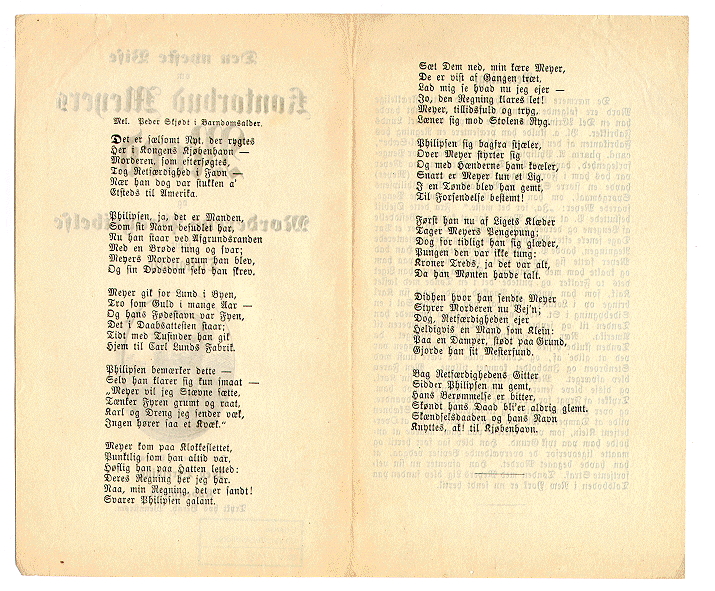 Mel. Peder Skjødt i Barndomsalder.
Det er sælsomt Nyt, der rygtes
Her i Kongens Kjøbenhavn —
Morderen, som eftersøgtes,
Tog Retfærdighed i Favn —
Nær han dog var stukken a'
Etsteds til Amerika.
Philipsen, ja, det er Manden,
Som sit Navn besudlet har,
Nu han staar ved Afgrundsranden
Med en Brøde tung og svar;
Meyers Morder grum han blev,
Og sin Dødsdom selv han skrev.
Meyer gik for Lund i Byen,
Tro som Guld i mange Aar —
Og hans Fødestavn var Fyen,
Det i Daabsattesten staar;
Tidt med Tusinder han gik
Hjem til Carl Lunds Fabrik.
Philipsen bemærker dette —
Selv han klarer sig kun smaat —
„Meyer vil jeg Stævne sætte,
Tænker Fyren grumt og raat,
Karl og Dreng jeg sender væk,
Ingen hører saa et Kvæk."
Meyer kom paa Klokkeslettet,
Punktlig som han altid var,
Høflig han paa Hatten letted:
Deres Regning her jeg har.
Naa, min Regning, det er sandt!
Svarer Philipsen galant.
Sæt Dem ned, min kære Meyer,
De er vist af Gangen træt,
Lad mig se hvad nu jeg ejer —
Jo, den Regning klares let!
Meyer, tillidsfuld og tryg,
Læner sig mod Stolens Ryg.
Philipsen sig bagfra stjæler,
Over Meyer styrter sig
Og med Hænderne ham kvæler,
Snart er Meyer kun et Lig.
I en Tønde blev han gemt,
Til Forsendelse bestemt!
Først han nu af Ligets Klæder
Tager Meyers Pengepung;
Dog for tidligt han sig glæder,
Pungen den var ikke tung:
Kroner Treds, ja det var alt,
Da han Mønten havde talt.
Didhen hvor han sendte Meyer
Styrer Morderen nu Vej'n;
Dog, Retfærdigheden ejer
Heldigvis en Mand som Klein:
Paa en Damper, stødt paa Grund,
Gjorde han sit Mesterfund.
Bag Retfærdighedens Gitter
Sidder Philipsen nu gemt,
Hans Berømmelse er bitter,
Skøndt hans Daad bli'er aldrig glemt.
Skændselsdaaden og hans Navn
Knyttes, ak! til Kjøbenhavn.